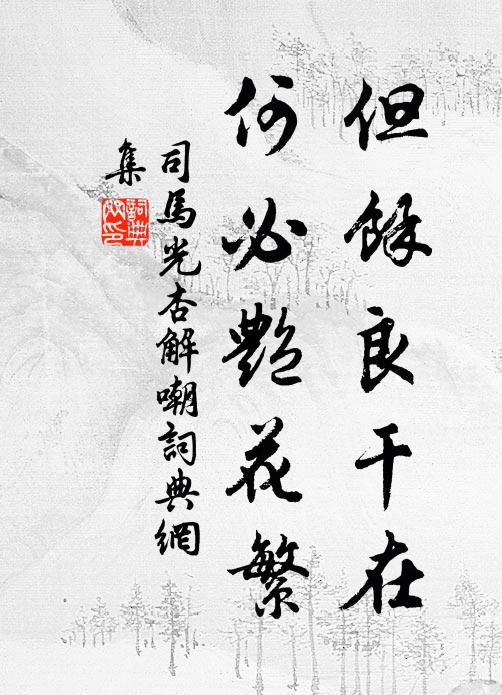 但餘良干在
何必艷花繁
司馬光杏解嘲詞典網
集
詞典
网印